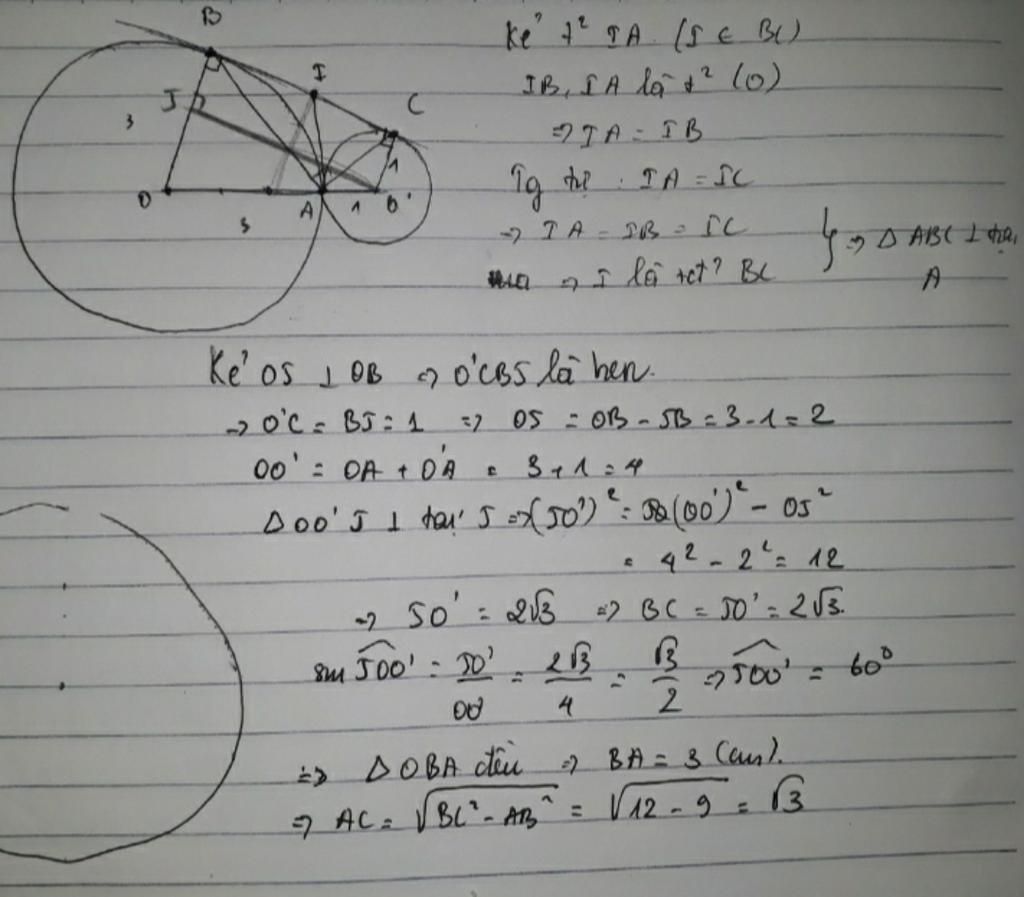 B
I
C
J
3
1
O
A
1
O'
3
Kẻ t² IA (I ∈ BC)
IB, IA là t² (O)
⇒ IA = IB
Tg tự : IA = IC
⇒ IA = IB = IC
⇒ I là tđ? BC
} ⇒ Δ ABC ⊥ tại
A
Kẻ O'J ⊥ OB ⇒ O'CBJ là hcn.
→ O'C = BJ = 1 ⇒ OJ = OB - JB = 3 - 1 = 2
OO' = OA + O'A = 3 + 1 = 4
Δ OO'J ⊥ tại J ⇒ (JO')² = (OO')² - OJ²
= 4² - 2² = 12
⇒ JO' = 2√3 ⇒ BC = JO' = 2√3.
sin JOO' = JO'/OO' = 2√3/4 = √3/2 ⇒ JOO' = 60°
⇒ Δ OBA đều ⇒ BA = 3 (cm).
⇒ AC = √(BC² - AB²) = √(12 - 9) = √3